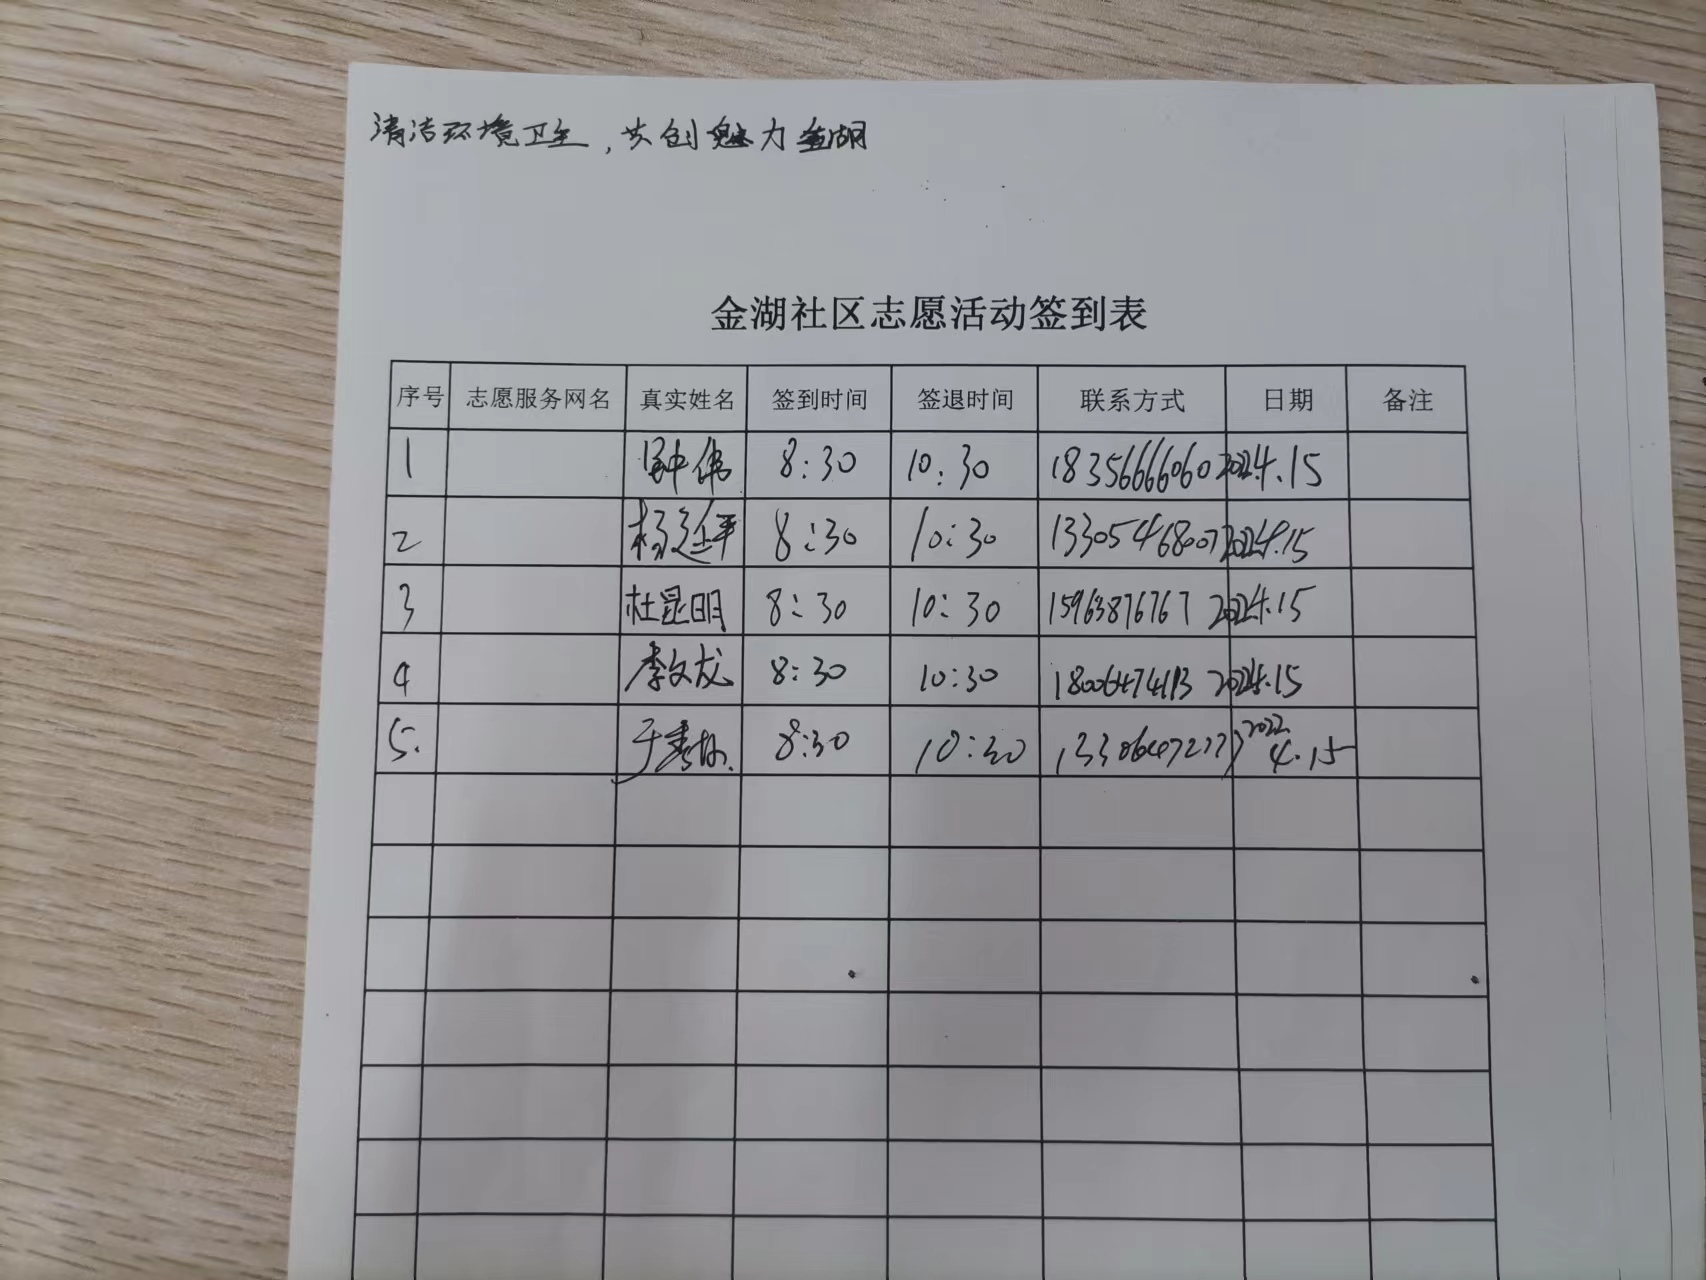 清洁环境卫生，共创魅力金湖
金湖社区志愿活动签到表
序号 志愿服务网名 真实姓名 签到时间 签退时间 联系方式 日期 备注
1 伟 8:30 10:30 18356666060 2022.4.15
2 杨延平 8:30 10:30 13305468007 2022.4.15
3 杜显明 8:30 10:30 15963876767 2022.4.15
4 李文龙 8:30 10:30 2022.4.15
5. 于秀 8:30 10:30 2022.4.15